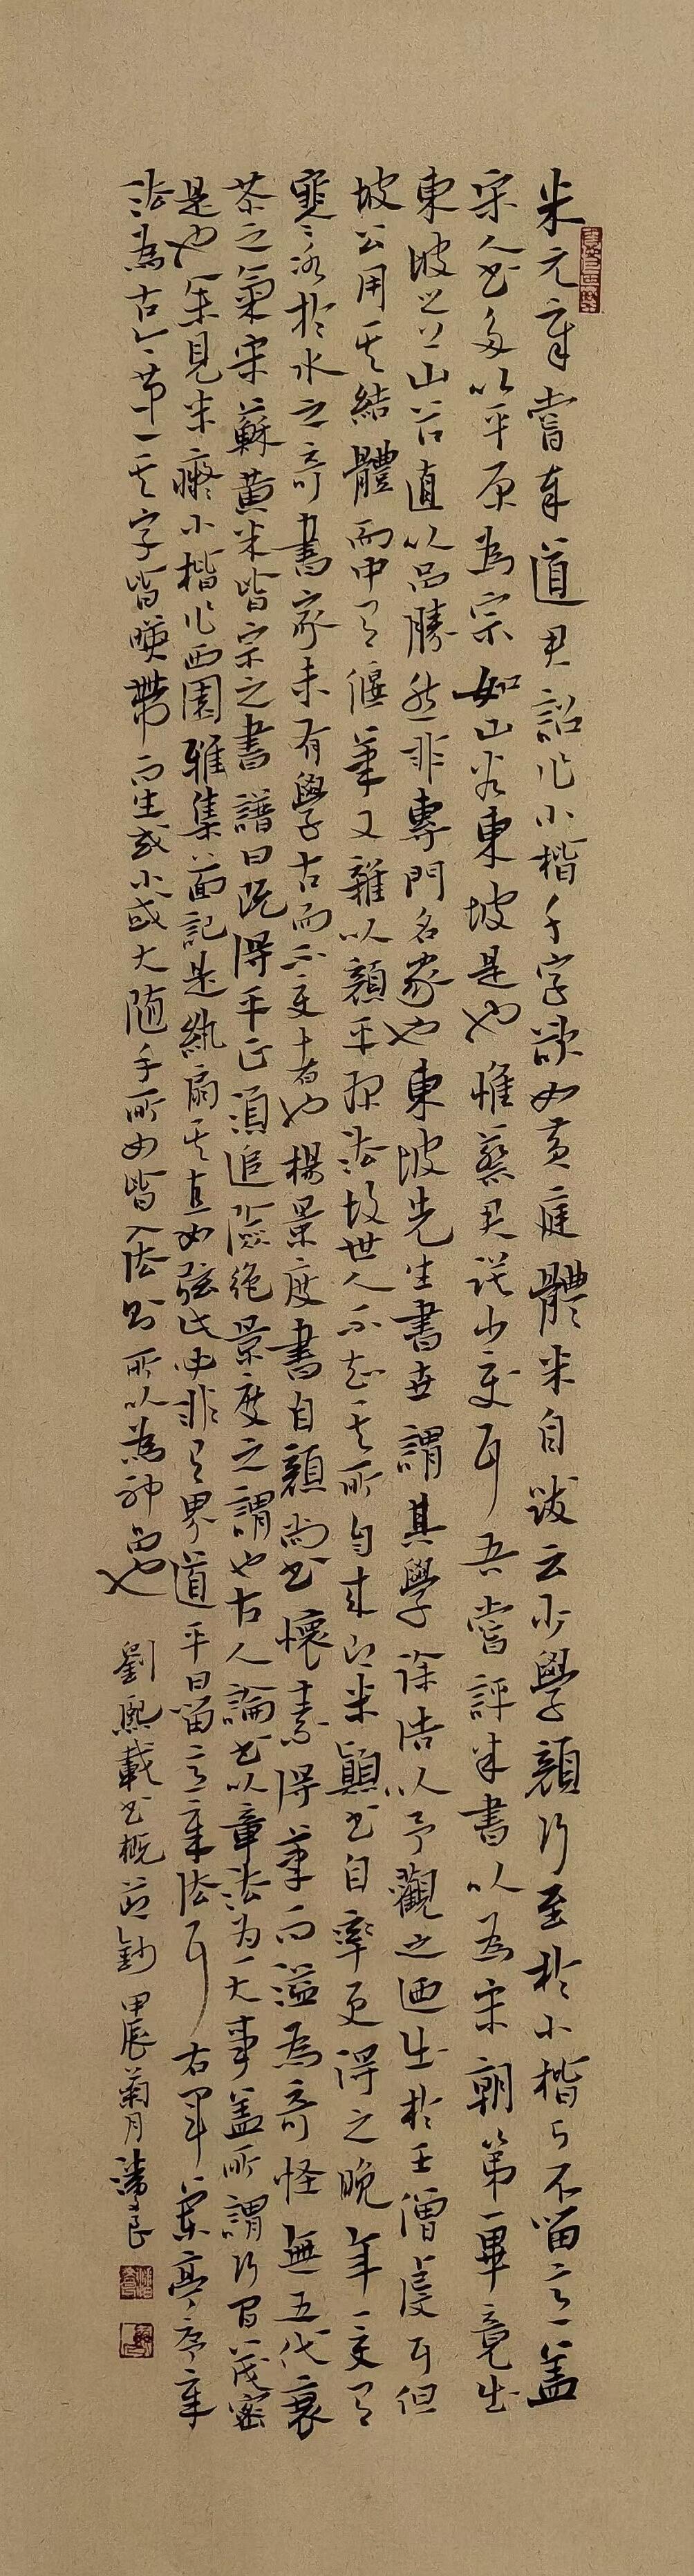 米元章嘗奉道君詔作小楷千字欲如黃庭體米自跋云少學顏行至於小楷了不留意蓋
宋人書多以平原為宗如山谷東坡是也惟蔡君謨少變耳吾嘗評米書以為宋朝第一畢竟出
東坡之上山谷直以品勝然非專門名家也東坡先生書世謂其學徐浩以予觀之迺出於王僧虔耳但
坡公用其結體而中有偃筆又雜以顏平原法故世人不知其所自來即米顛書自率更得之晚年一變有
寔冰於水之奇書家未有學古而不變者也楊景度書自顏尚書懷素得筆而溢為奇怪無五代衰
茶之氣宋蘇黃米皆宗之書譜曰既得平正須追險絕景度之謂也古人論書以章法為一大事蓋所謂行間茂密
是也余見米癡小楷作西園雅集圖記是紈扇其直如弦此必非有界道平日留意章法耳右軍蘭亭序章
法為古今第一其字皆暎帶而生或小或大随手所如皆入法則所以為神品也 劉熙載書概節鈔 甲辰菊月